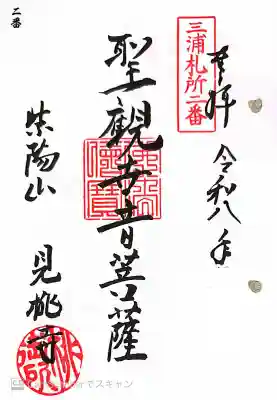 三浦札所二番
奉拝 令和八年
聖観世音菩薩
紫陽山 見桃寺
二番
でスキャン